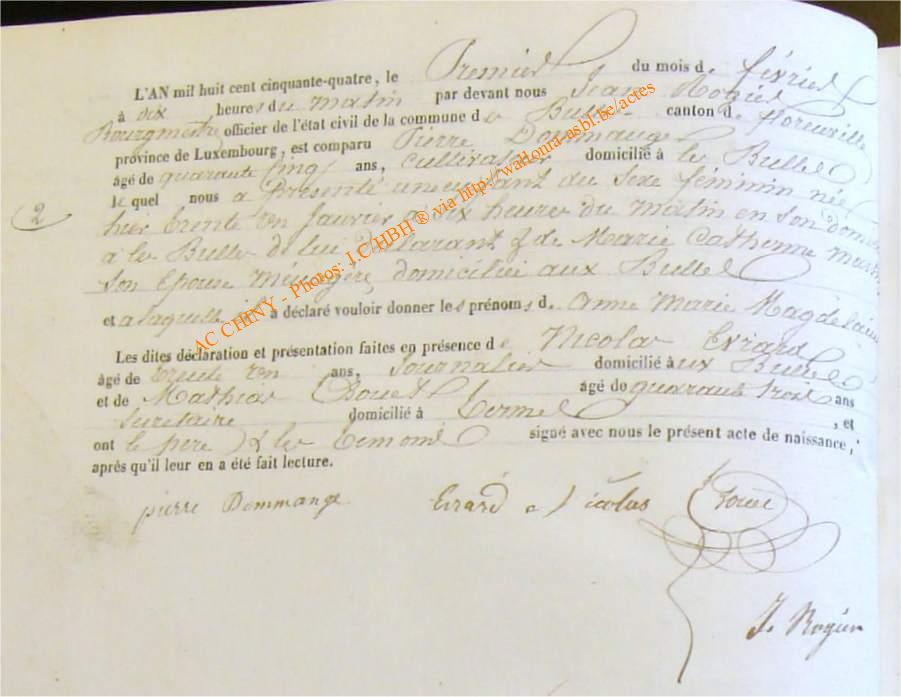 L'AN mil huit cent cinquante-quatre, le Premier du mois d février
à dix heures du matin par devant nous Jean Rogier
Bourgmestre officier de l'état civil de la commune de Bulles canton de florenville
province de Luxembourg, est comparu Pierre Dommange
âgé de quarante cinq ans, cultivateur domicilié à les Bulles
lequel nous a Présenté un enfant du sexe féminin née
2
hier trente en Janvier a dix heures du matin en son domicile
a les Bulles de lui déclarant & de Marie Catherine
son Epouse ménagère domiciliée aux Bulles
et a laquelle il a déclaré vouloir donner les prénoms d. Anne Marie Magdelaine
Les dites déclaration et présentation faites en présence de Nicolas Evrard
âgé de trente ans, Journalier domicilié aux Bulles
et de Mathias âgé de quarante trois ans
secretaire domicilié à Termes , et
ont le père & les temoins signé avec nous le présent acte de naissance,
après qu'il leur en a été fait lecture.
pierre Dommange Evrard Nicolas
J. Rogier
AC CHINY - Photos: J.C HBH ® via http://wallonia-asbl.be/actes